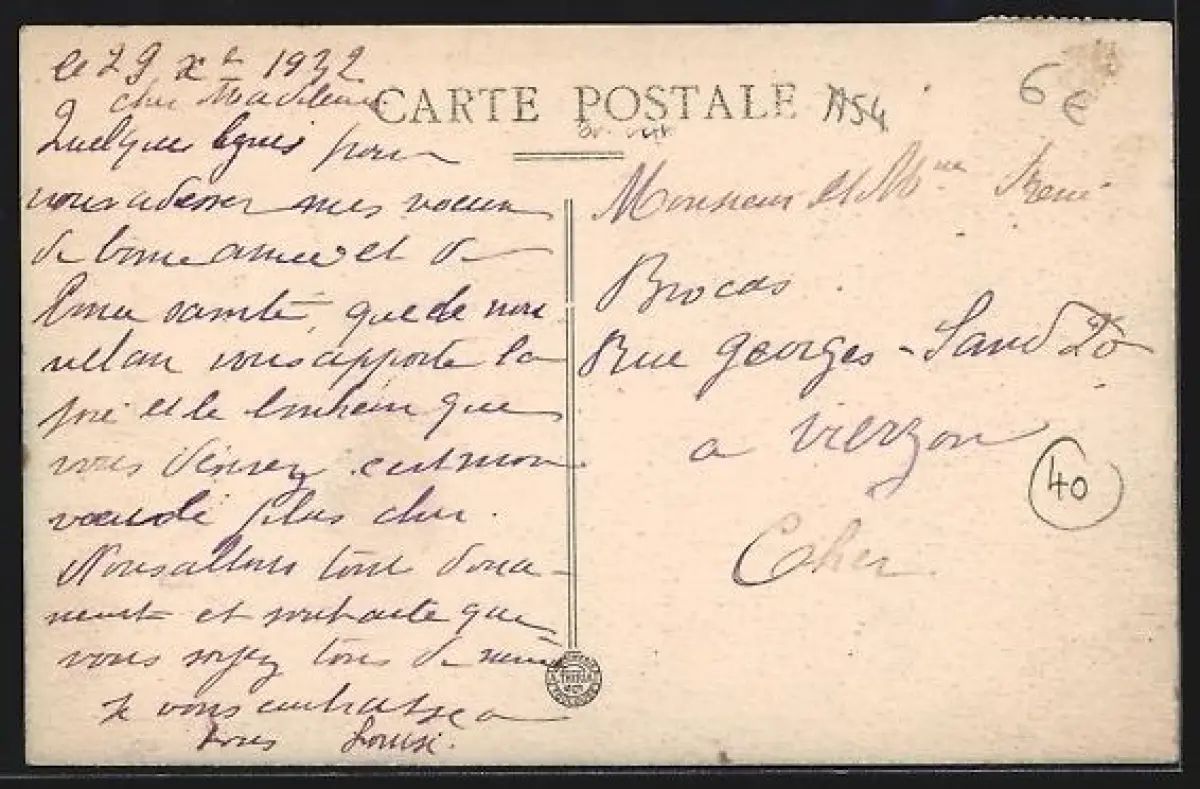 le 29 Xbre 1932
cher Madeleine
CARTE POSTALE
A54
6 €
Quelques lignes pour
vous adresser mes voeux
de bonne année et de
bonne santé, que le nou
vel an vous apporte la
joie et le bonheur que
vous désirez c'est mon
voeu le plus cher.
Nous allons tous douce-
ment et souhaite que
vous soyez tous de même
Je vous embrasse a
tous Louise.
Monsieur et Mme René
Brocas
Rue Georges-Sand 20
a Vierzon
Cher
40